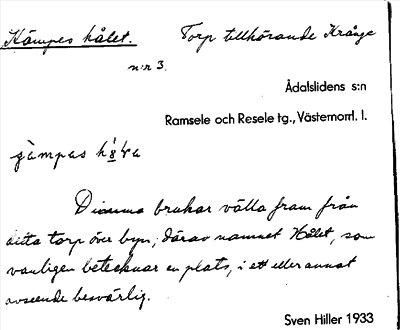 Kämpes hålet. Torp tillhörande Krånge
n:r 3.
Ådalslidens s:n
Ramsele och Resele tg., Västernorrl. l.
Dimma brukar välla fram från
detta torp över byn; därav namnet Hålet, som
vanligen betecknar en plats, i ett eller annat
avseende besvärlig.
Sven Hiller 1933